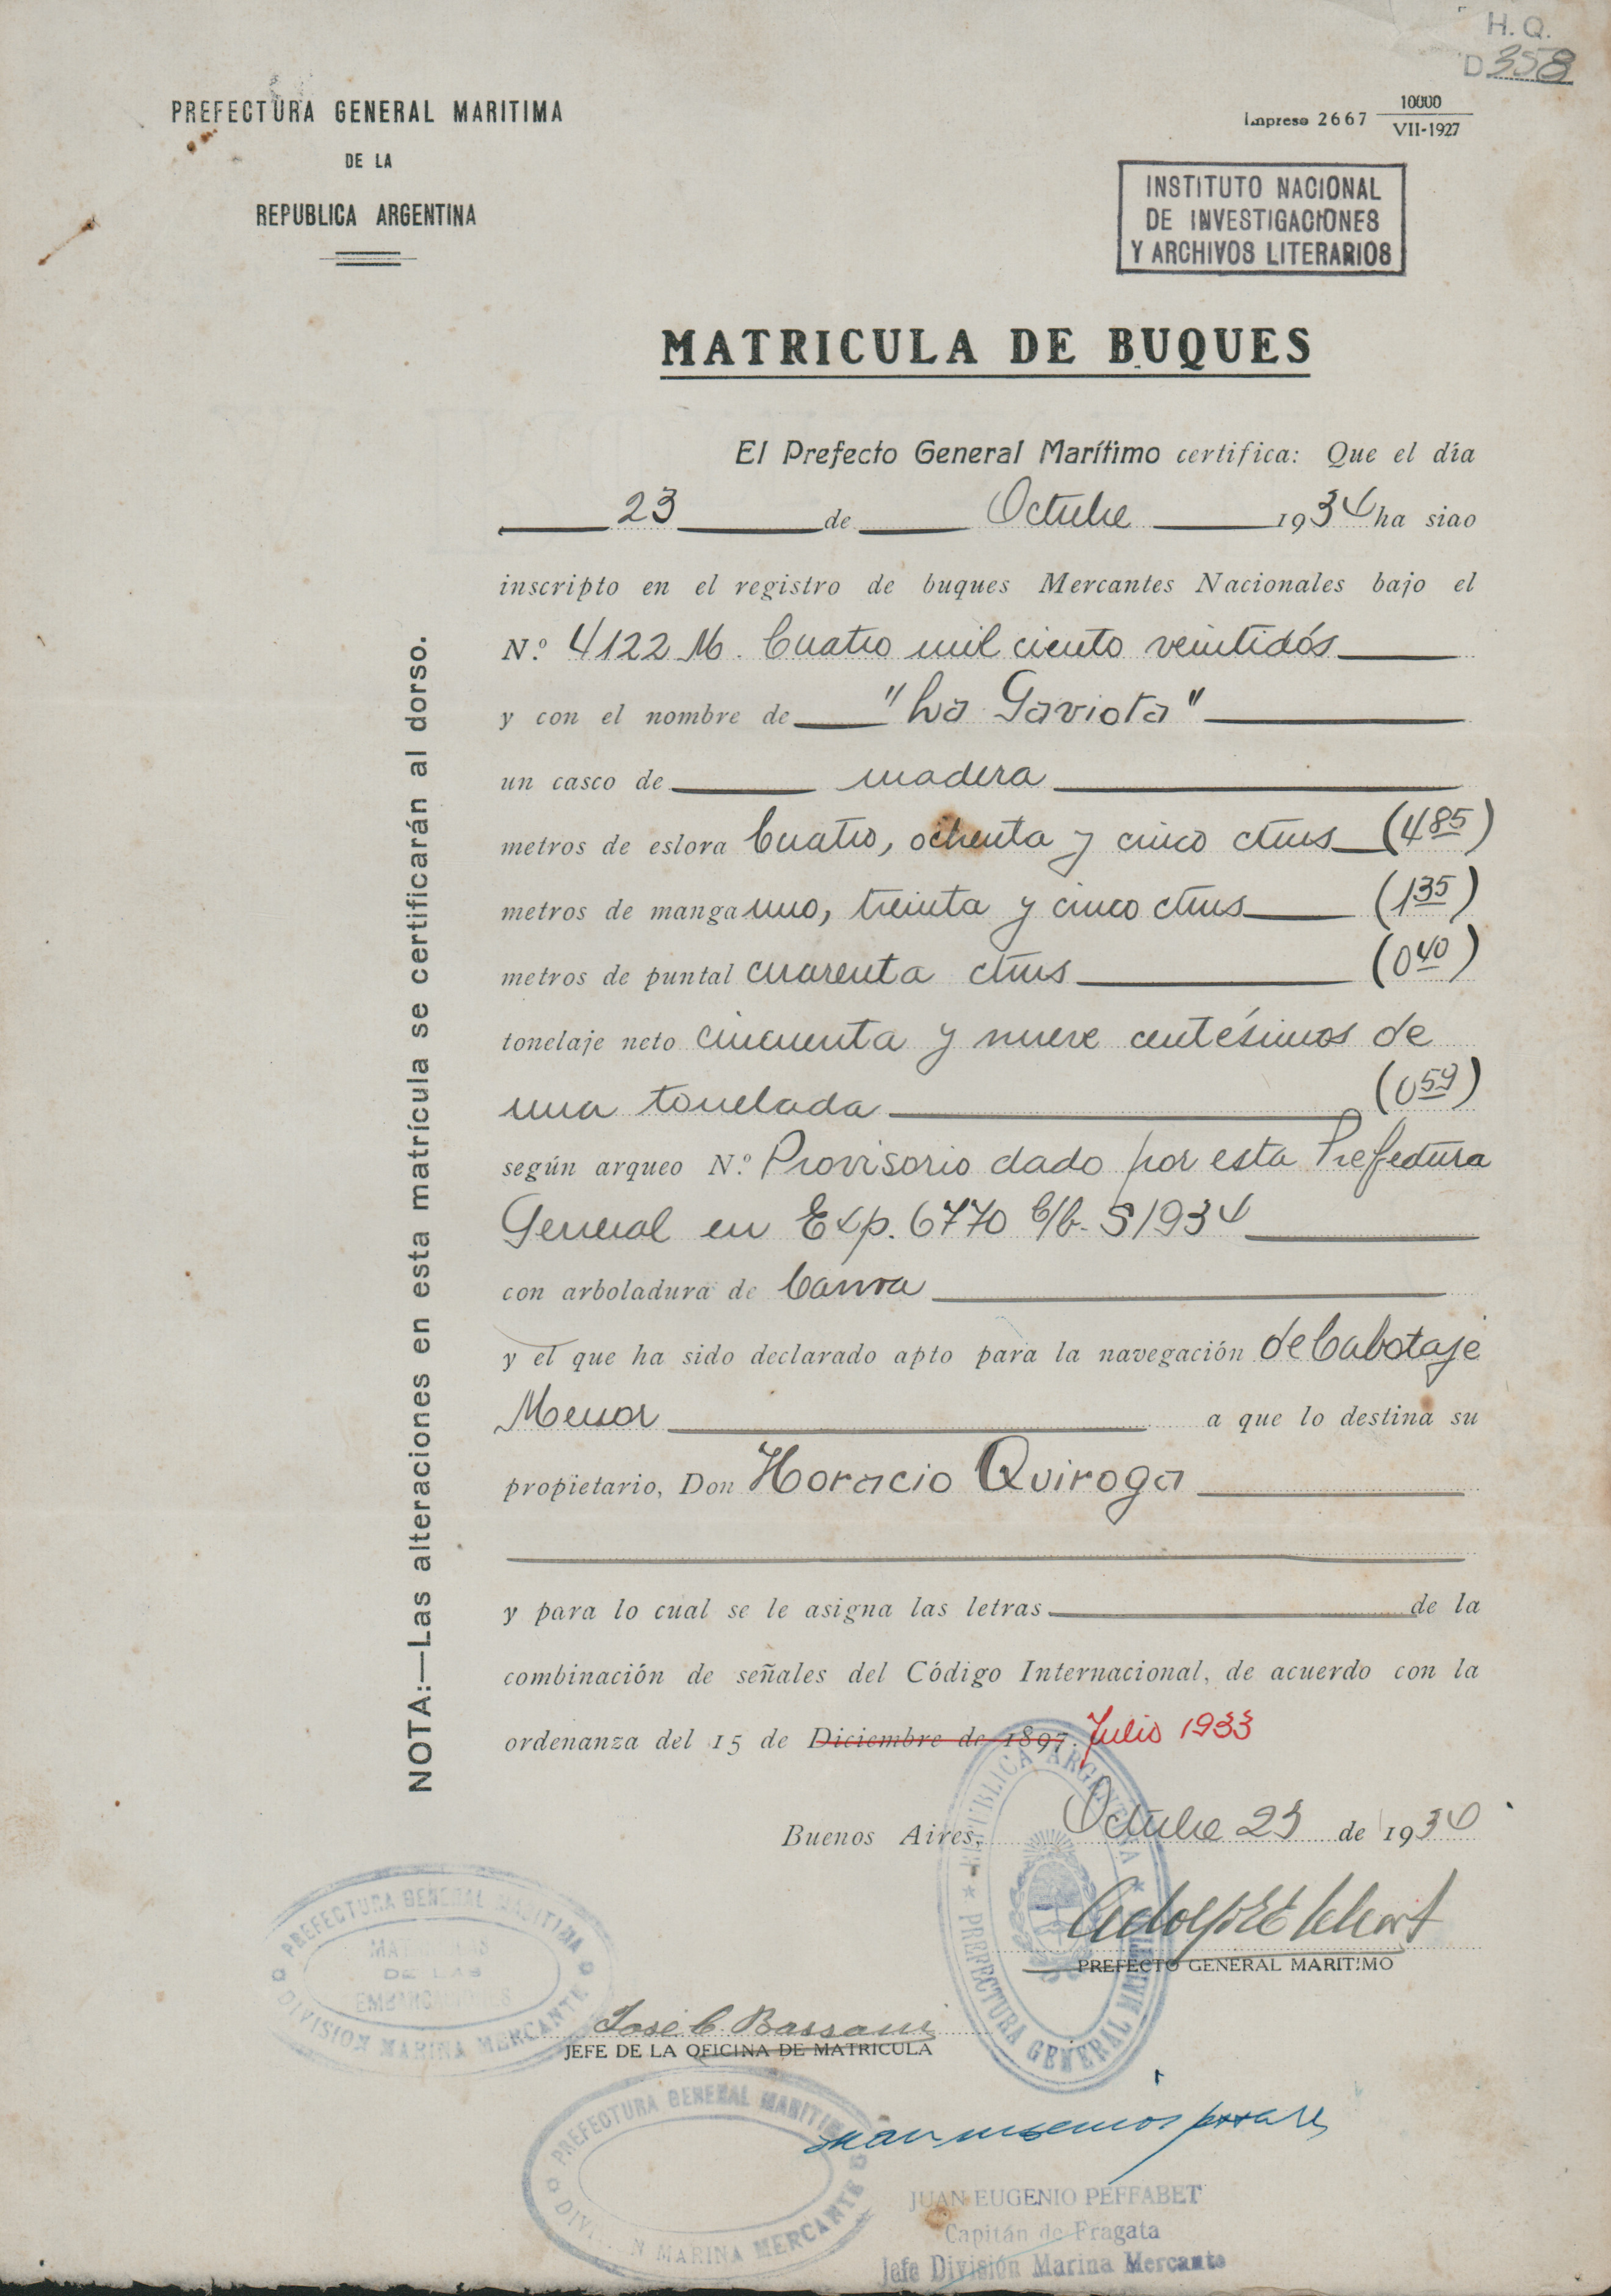 H. Q.
D 358
PREFECTURA GENERAL MARITIMA
DE LA
REPUBLICA ARGENTINA
Impreso 2667 10000
VII-1927
INSTITUTO NACIONAL
DE INVESTIGACIONES
Y ARCHIVOS LITERARIOS
MATRICULA DE BUQUES
El Prefecto General Marítimo certifica: Que el día
23 de Octubre 1934 ha sido
inscripto en el registro de buques Mercantes Nacionales bajo el
N.º 4122 M. Cuatro mil ciento veintidós
y con el nombre de "La Gaviota"
un casco de madera
metros de eslora Cuatro, ochenta y cinco ctms (4 85)
metros de manga uno, treinta y cinco ctms (1 35)
metros de puntal cuarenta ctms (0 40)
tonelaje neto cincuenta y nueve centésimos de
una tonelada (0 59)
según arqueo N.º Provisorio dado por esta Prefectura
General en Exp. 6770 1934
con arboladura de Canoa
y el que ha sido declarado apto para la navegación de Cabotaje
Menor a que lo destina su
propietario, Don Horacio Quiroga
y para lo cual se le asigna las letras de la
combinación de señales del Código Internacional, de acuerdo con la
ordenanza del 15 de Diciembre de 1897. Julio 1933
Buenos Aires, Octubre 23 de 1934
PREFECTO GENERAL MARITIMO
José C. Bassani
JEFE DE LA OFICINA DE MATRICULA
JUAN EUGENIO PEFFABET
Capitán de Fragata
Jefe División Marina Mercante
NOTA:—Las alteraciones en esta matrícula se certificarán al dorso.
REPUBLICA ARGENTINA
PREFECTURA GENERAL MARITIMA
PREFECTURA GENERAL MARITIMA
DE LAS
DIVISION MARINA MERCANTE
PREFECTURA GENERAL MARITIMA
MARINA MERCANTE